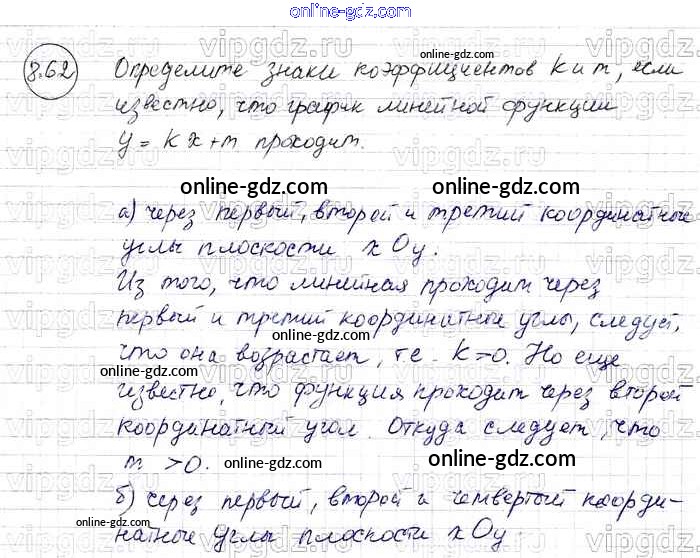 online-gdz.com
8.62 Определите знаки коэффициентов k и m, если
online-gdz.com
известно, что график линейной функции
y = kx+m проходит.
online-gdz.com online-gdz.com
а) через первый, второй и третий координатные
углы плоскости xOy.
Из того, что линейная проходит через
первый и третий координатные углы, следует,
online-gdz.com
что она возрастает, т.е. k>0. Но еще
известно, что функция проходит через второй
координатный угол. Откуда следует, что
m >0. online-gdz.com online-gdz.com
б) через первый, второй и четвертый коорди-
online-gdz.com
натные углы плоскости xOy.
online-gdz.com
vipgdz.ru